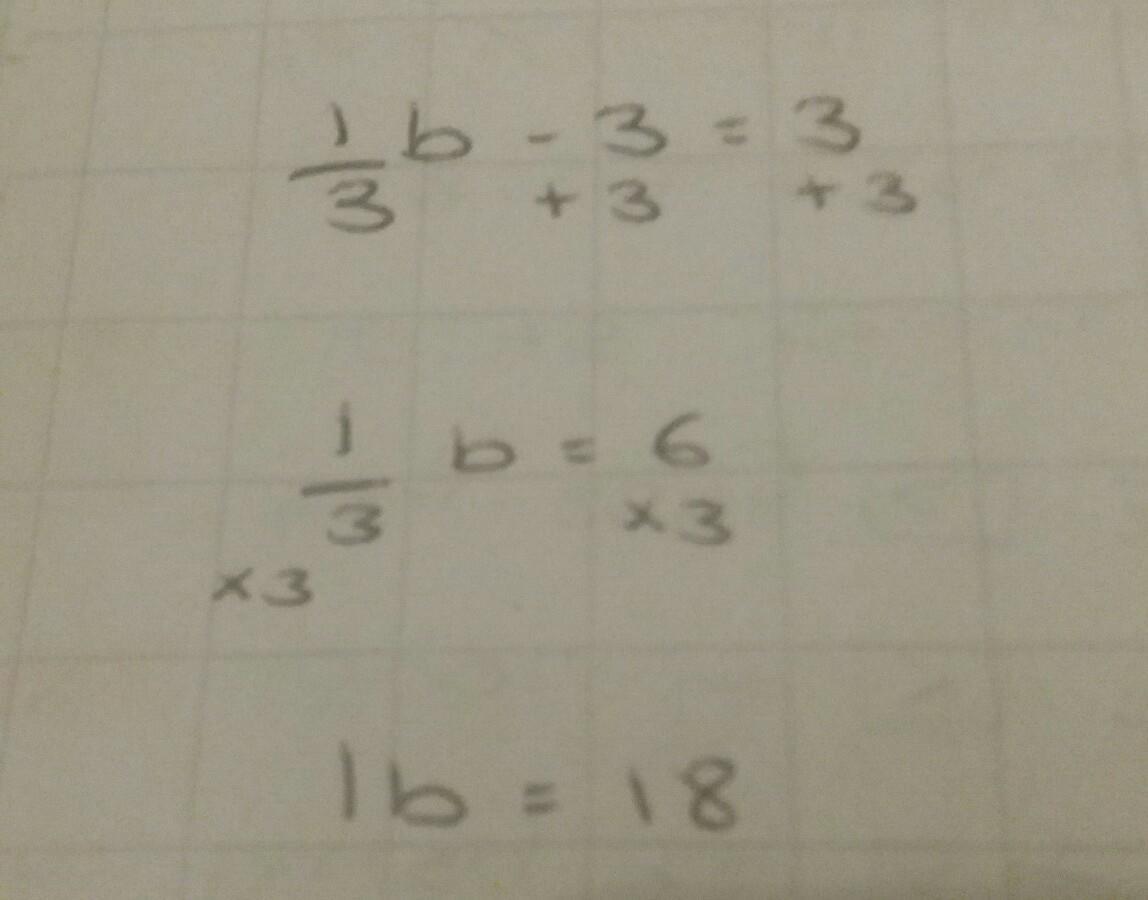 1/3 b - 3 = 3
+ 3 + 3
1/3 b = 6
× 3 × 3
1b = 18